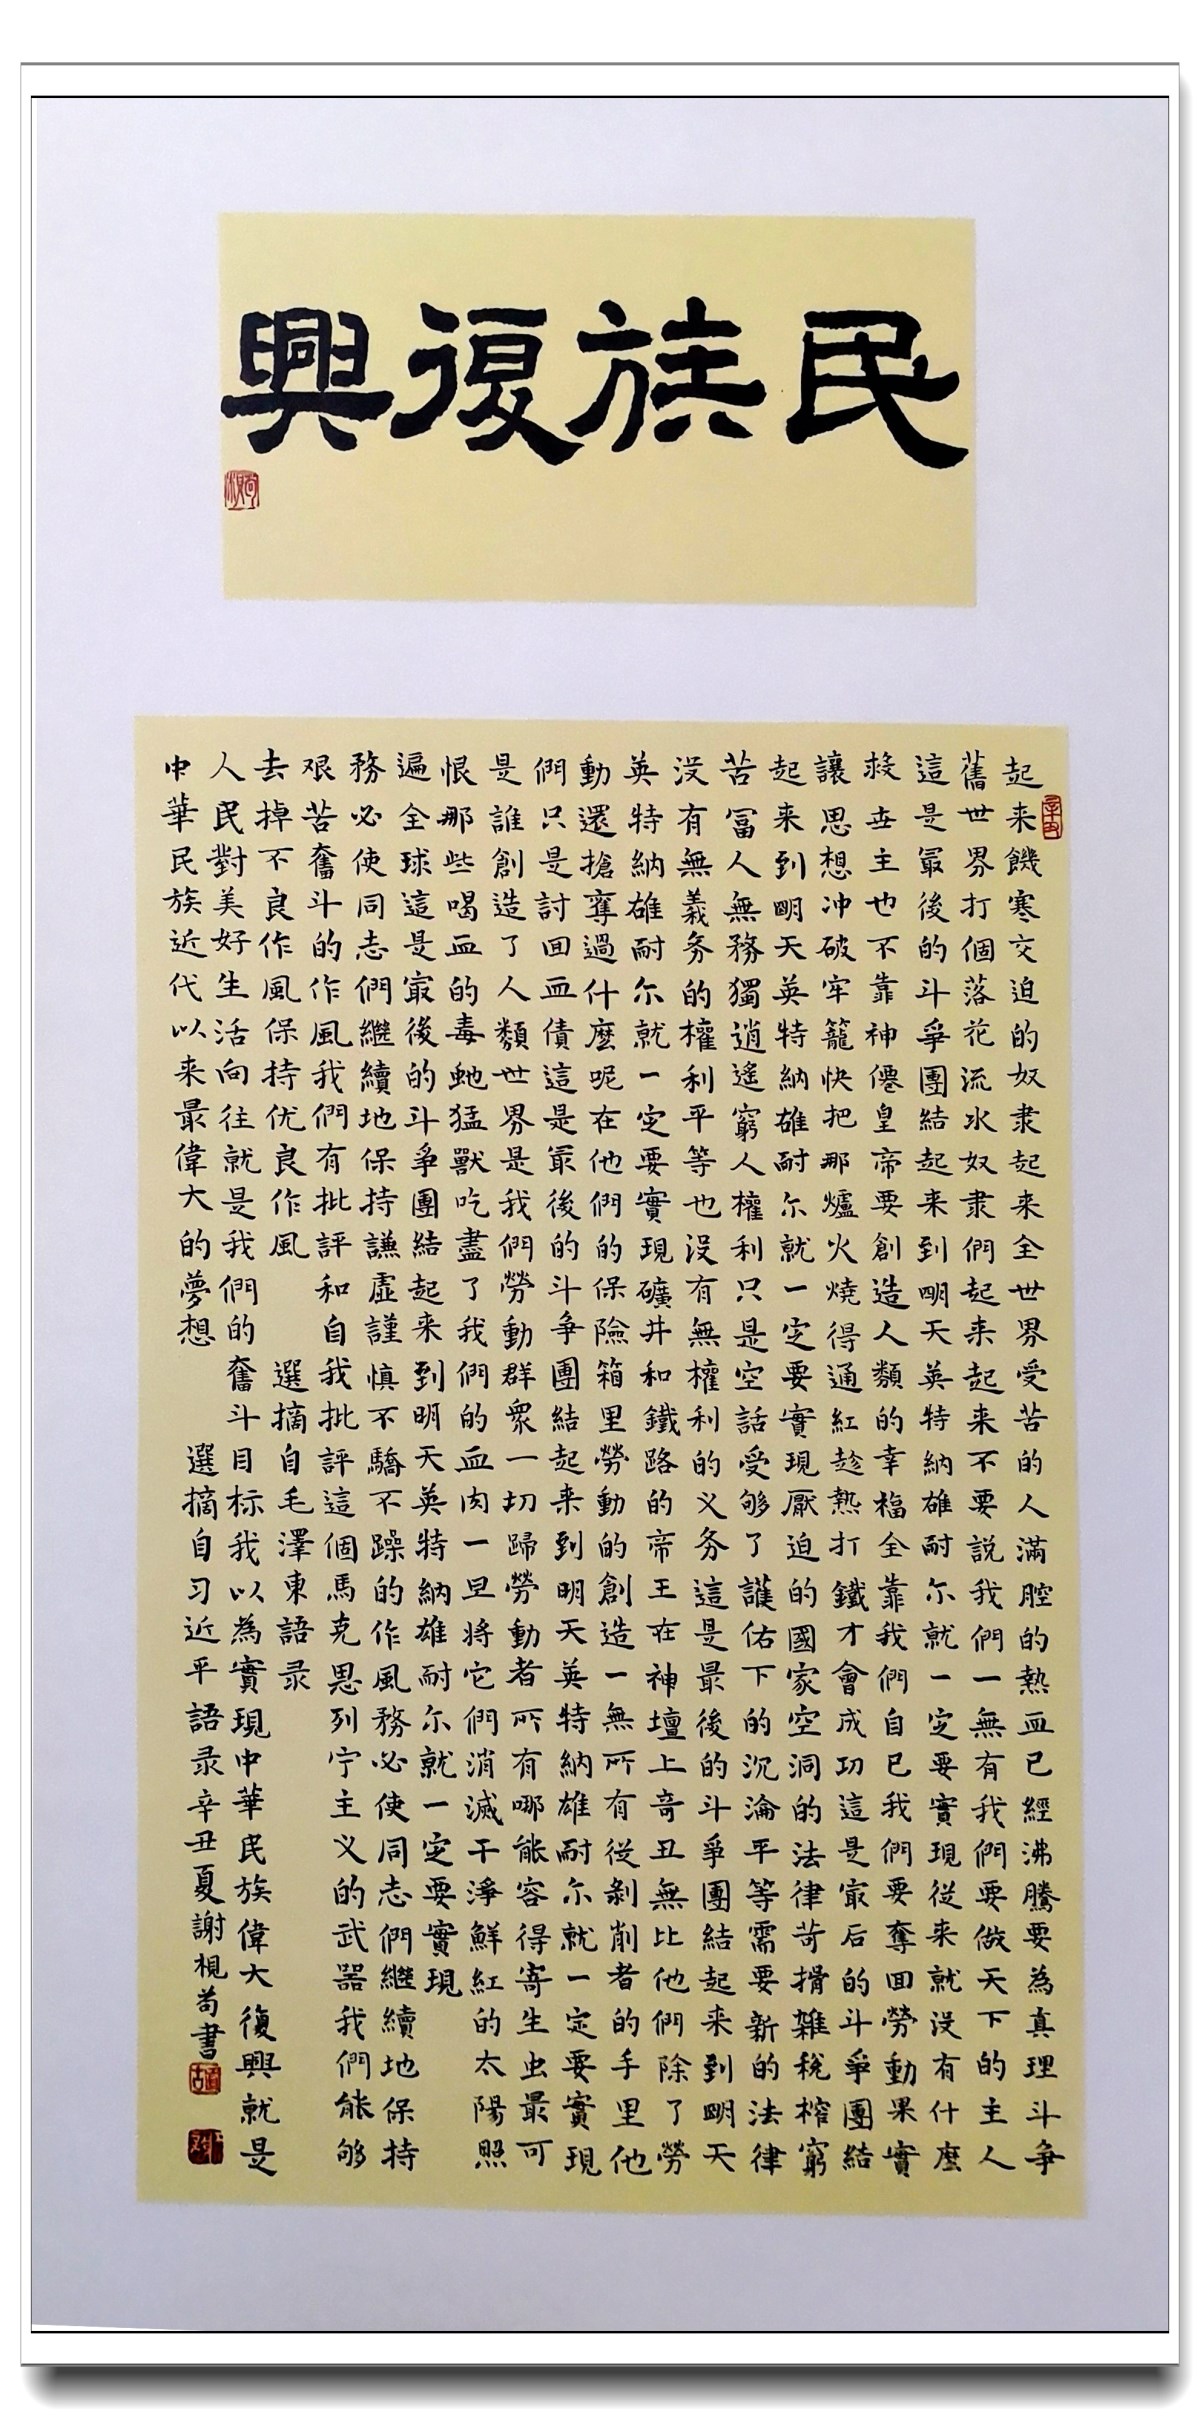 民族復興
辛丑
起来饑寒交迫的奴隶起来全世界受苦的人滿腔的熱血已經沸騰要為真理斗争
舊世界打個落花流水奴隶們起来起来不要説我們一無有我們要做天下的主人
這是最後的斗爭團結起来到明天英特納雄耐尔就一定要實現從来就没有什麼
救世主也不靠神僊皇帝要創造人類的幸福全靠我們自已我們要奪回勞動果實
讓思想冲破牢籠快把那爐火燒得通紅趁熱打鐵才會成功這是最后的斗爭團結
起来到明天英特納雄耐尔就一定要實現壓迫的國家空洞的法律苛捐雜税榨窮
苦冨人無務獨逍遥窮人權利只是空話受够了護佑下的沉淪平等需要新的法律
没有無義务的權利平等也没有無權利的义务這是最後的斗爭團結起来到明天
英特納雄耐尔就一定要實現礦井和鐵路的帝王在神壇上奇丑無比他們除了勞
動還搶奪過什麼呢在他們的保險箱里勞動的創造一無所有從剥削者的手里他
們只是討回血債這是最後的斗争團結起来到明天英特納雄耐尔就一定要實現
是誰創造了人類世界是我們勞動群衆一切歸勞動者所有哪能容得寄生虫最可
恨那些喝血的毒虵猛獸吃盡了我們的血肉一旦将它們消滅干淨鮮紅的太陽照
遍全球這是最後的斗爭團結起来到明天英特納雄耐尔就一定要實現
務必使同志們繼續地保持謙虚謹慎不驕不躁的作風務必使同志們繼續地保持
艰苦奮斗的作風我們有批評和自我批評這個馬克思列宁主义的武器我們能够
去掉不良作風保持优良作風 選摘自毛澤東語录
人民對美好生活向往就是我們的奮斗目标我以為實現中華民族偉大復興就是
中華民族近代以来最偉大的夢想 選摘自习近平語录辛丑夏謝梘苟書